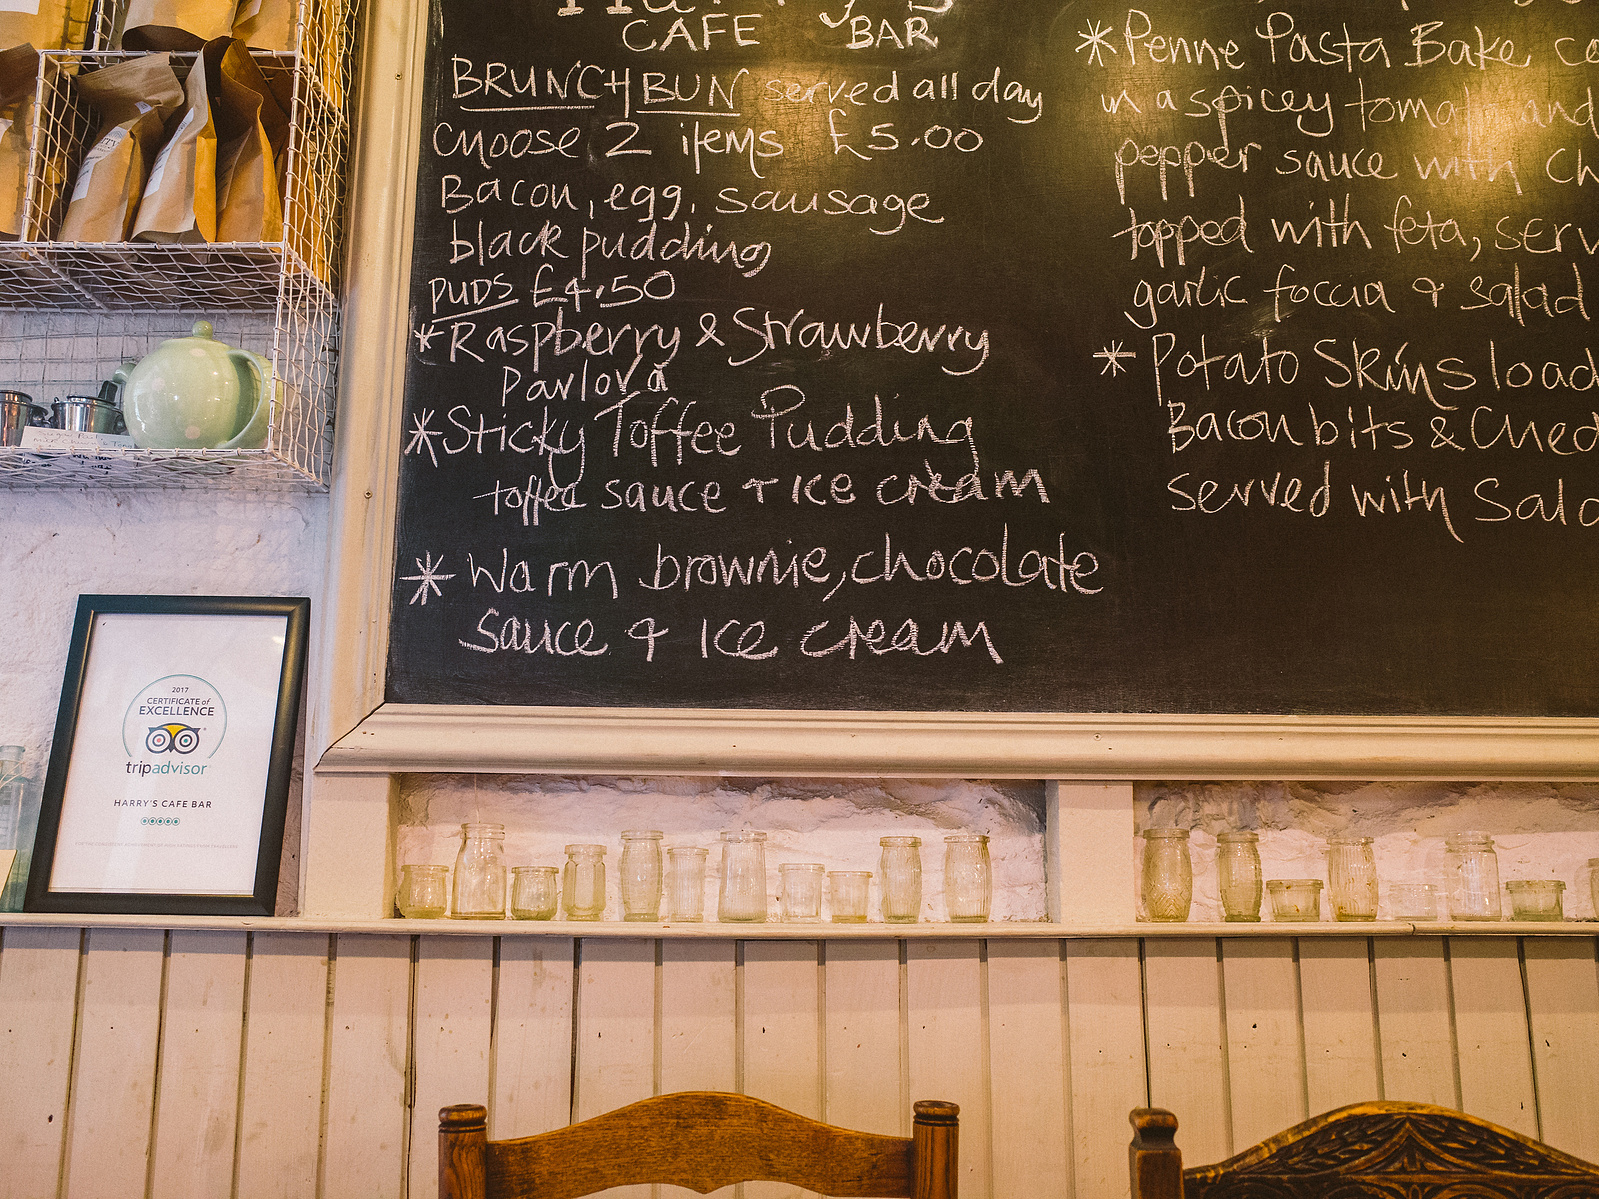 Harry's
CAFE BAR
BRUNCH BUN served all day
Choose 2 items £5.00
Bacon, egg, sausage
black pudding
PUDS £4.50
*Raspberry & Strawberry
Pavlova
*Sticky Toffee Pudding
toffee sauce + ice cream
* Warm brownie, chocolate
sauce & ice cream
*Penne Pasta Bake, co
in a spicey tomato and
pepper sauce with Ch
topped with feta, serv
garlic foccia & salad
* Potato Skins load
Bacon bits & Ched
served with Sala
2017
CERTIFICATE of
EXCELLENCE
tripadvisor
HARRY'S CAFE BAR